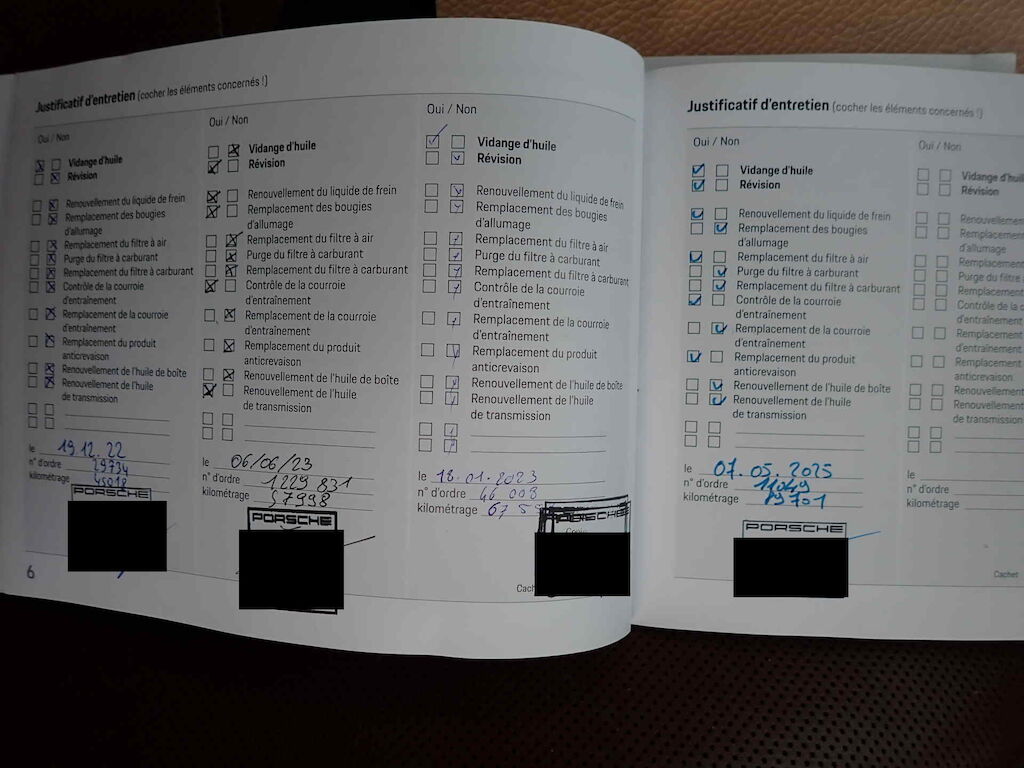 Justificatif d'entretien (cocher les éléments concernés !)
Oui / Non
Vidange d'huile
Révision
Renouvellement du liquide de frein
Remplacement des bougies
d'allumage
Remplacement du filtre à air
Purge du filtre à carburant
Remplacement du filtre à carburant
Contrôle de la courroie
d'entraînement
Remplacement de la courroie
d'entraînement
Remplacement du produit
anticrevaison
Renouvellement de l'huile de boîte
Renouvellement de l'huile
de transmission
le 19.12.22
n° d'ordre 29734
kilométrage 45018
PORSCHE
6
Oui / Non
Vidange d'huile
Révision
Renouvellement du liquide de frein
Remplacement des bougies
d'allumage
Remplacement du filtre à air
Purge du filtre à carburant
Remplacement du filtre à carburant
Contrôle de la courroie
d'entraînement
Remplacement de la courroie
d'entraînement
Remplacement du produit
anticrevaison
Renouvellement de l'huile de boîte
Renouvellement de l'huile
de transmission
le 06/06/23
n° d'ordre 1229 831
kilométrage 57998
PORSCHE
Oui / Non
Vidange d'huile
Révision
Renouvellement du liquide de frein
Remplacement des bougies
d'allumage
Remplacement du filtre à air
Purge du filtre à carburant
Remplacement du filtre à carburant
Contrôle de la courroie
d'entraînement
Remplacement de la courroie
d'entraînement
Remplacement du produit
anticrevaison
Renouvellement de l'huile de boîte
Renouvellement de l'huile
de transmission
le 18.01.2023
n° d'ordre 46 008
kilométrage
PORSCHE
Justificatif d'entretien (cocher les éléments concernés !)
Oui / Non
Vidange d'huile
Révision
Renouvellement du liquide de frein
Remplacement des bougies
d'allumage
Remplacement du filtre à air
Purge du filtre à carburant
Remplacement du filtre à carburant
Contrôle de la courroie
d'entraînement
Remplacement de la courroie
d'entraînement
Remplacement du produit
anticrevaison
Renouvellement de l'huile de boîte
Renouvellement de l'huile
de transmission
le 07.05.2025
n° d'ordre 11049
kilométrage
PORSCHE
Oui / Non
Vidange d'huile
Révision
Renouvellement
Remplacement
d'allumage
Remplacement
Purge du filtre à
Remplacement
Contrôle de la
d'entraînement
Remplacement
d'entraînement
Remplacement
anticrevaison
Renouvellement
Renouvellement
de transmission
le
n° d'ordre
kilométrage
Cachet